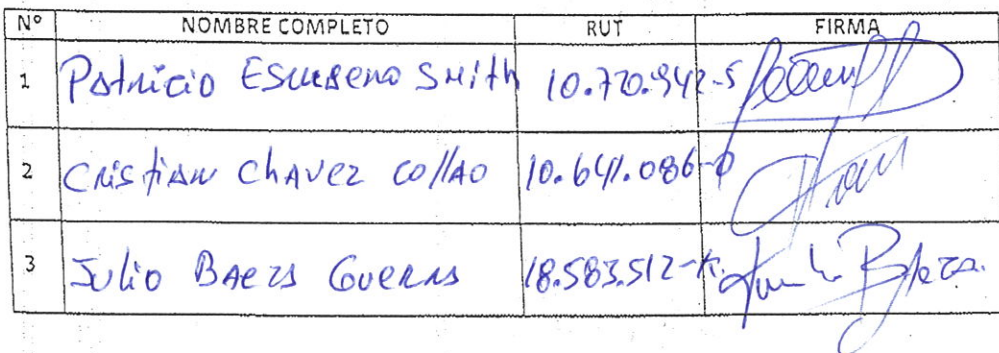 Nº NOMBRE COMPLETO RUT FIRMA
1 Patricio Escudero Smith 10.720.942-5
2 Cristian Chavez Collao 10.641.086-0
3 Julio Baeza Guerra 18.583.512-K Baeza.